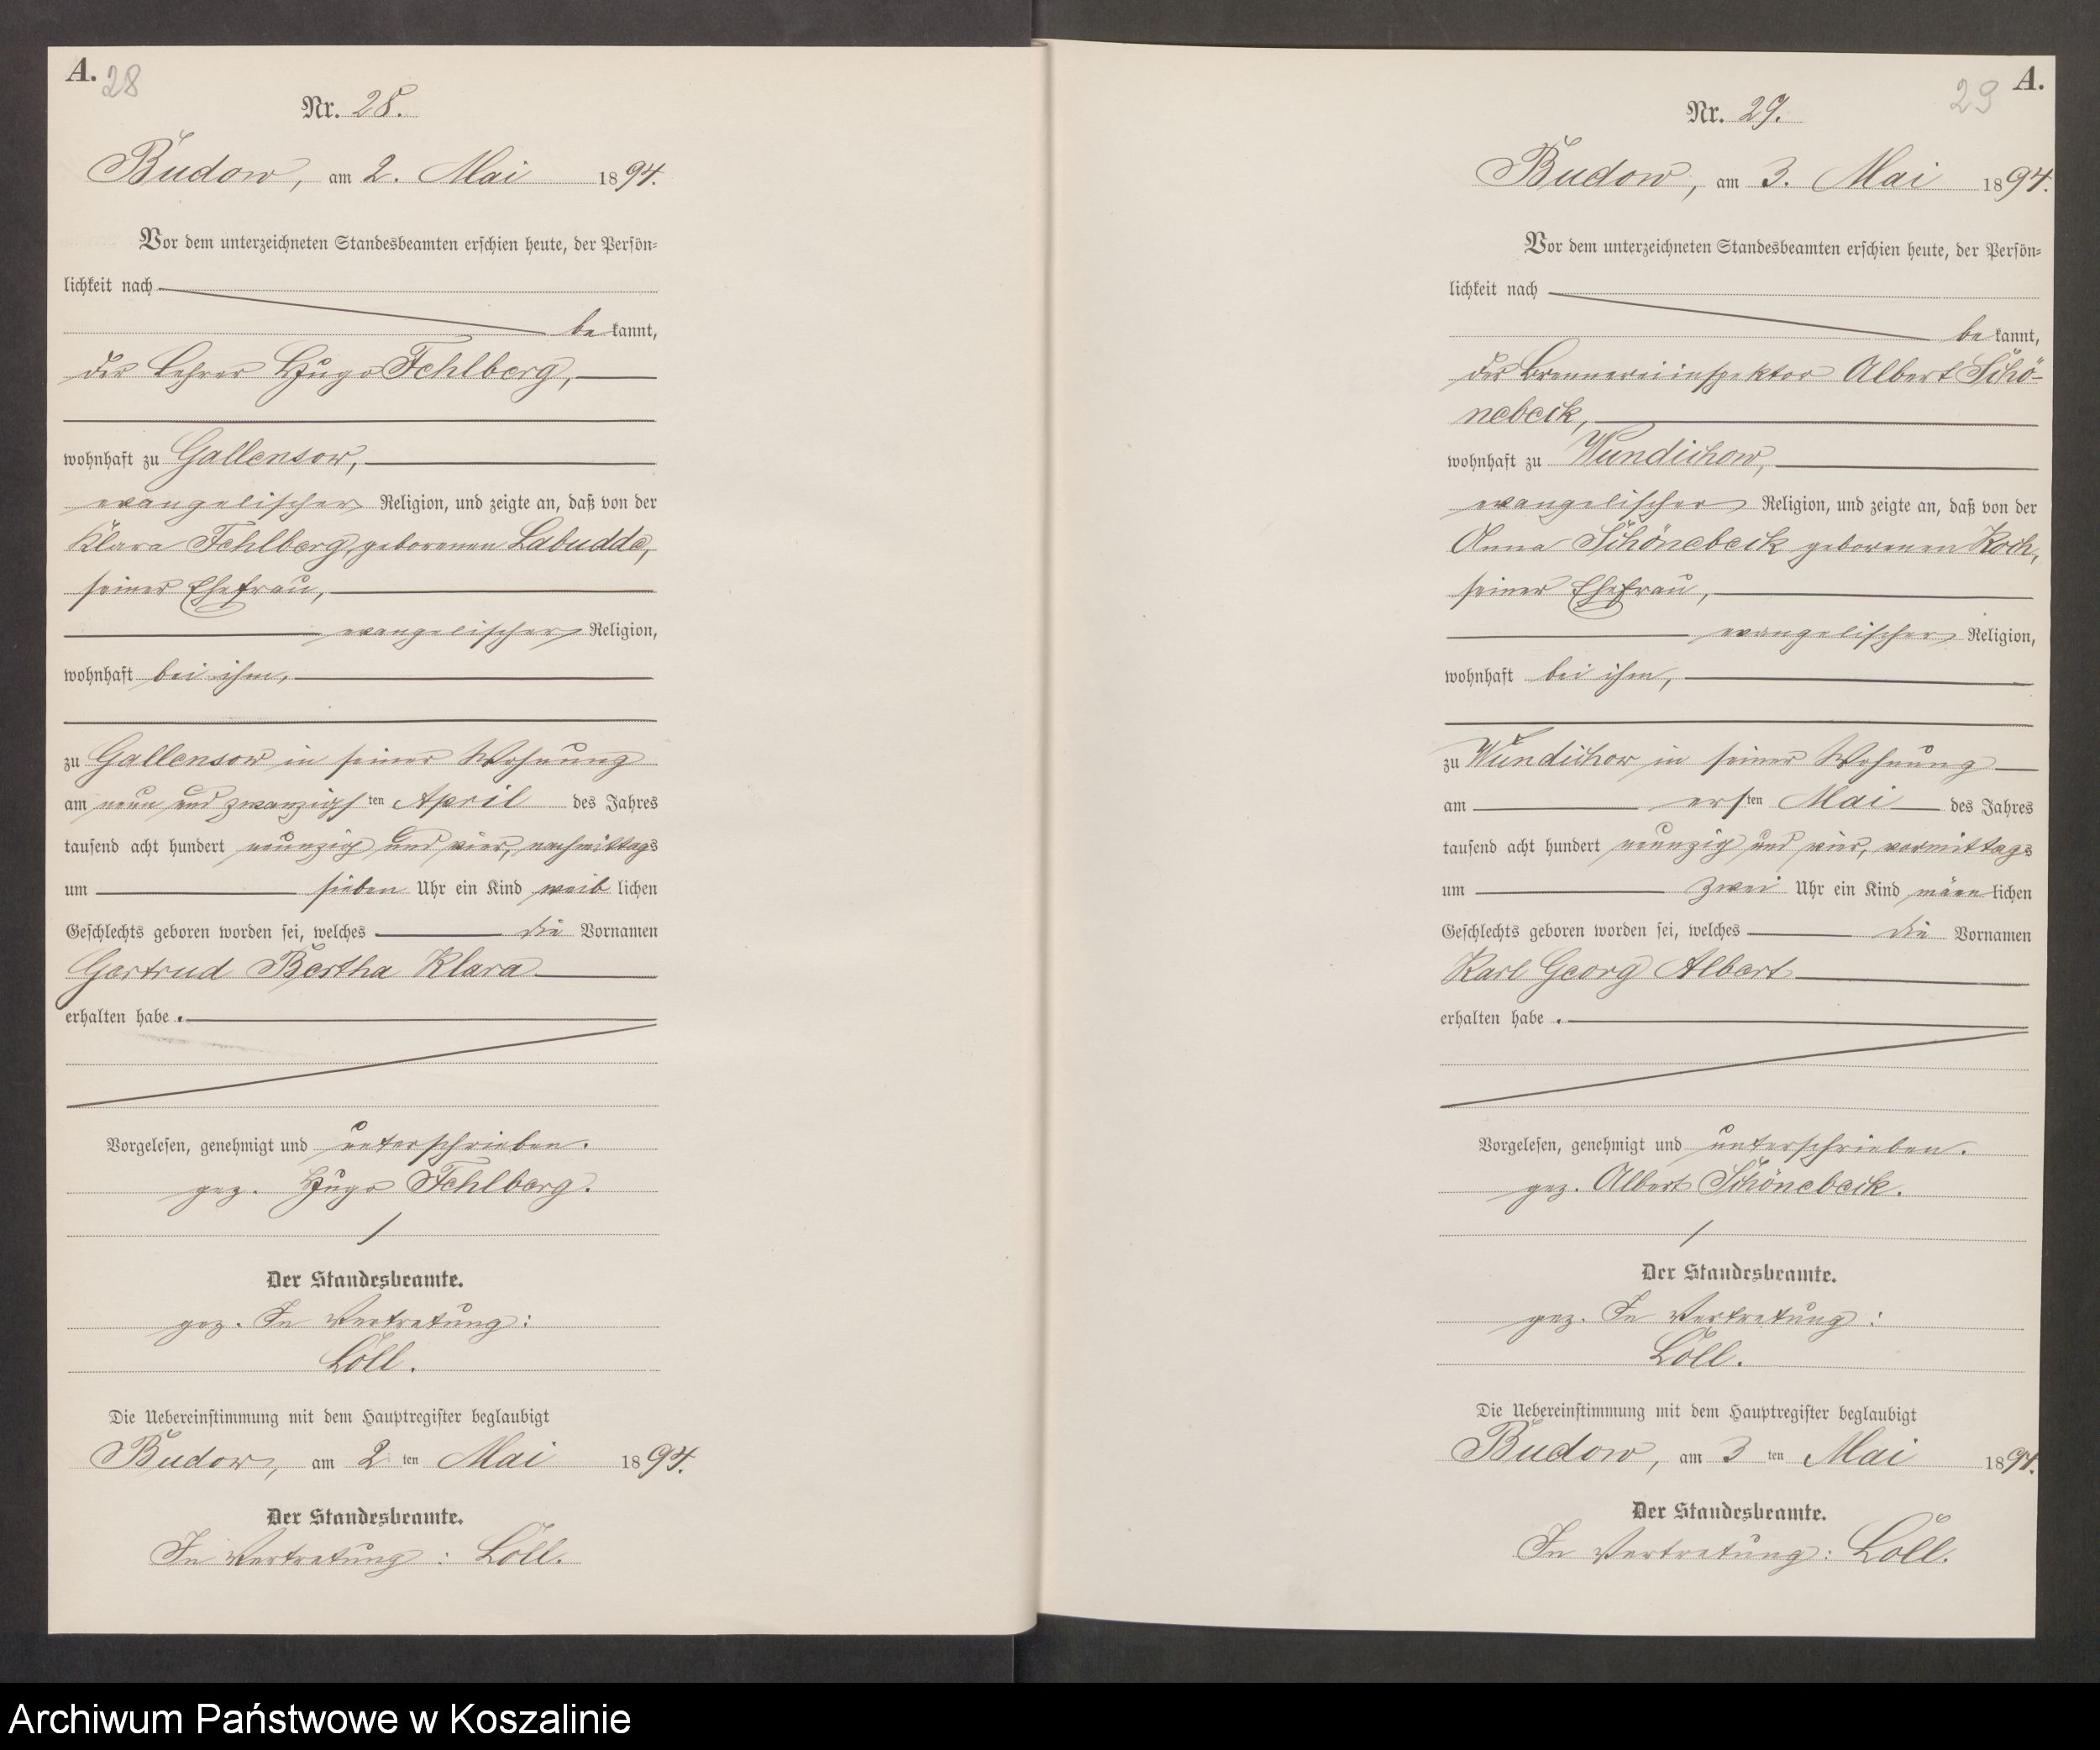 A.
28
Nr. 28.
Budow, am 2. Mai 1894.
Vor dem unterzeichneten Standesbeamten erschien heute, der Persön-
lichkeit nach
bekannt,
der Lehrer Hugo Fehlberg,
wohnhaft zu Gallensow,
evangelischer Religion, und zeigte an, daß von der
Klara Fehlberg, geborenen Labudde,
seiner Ehefrau,
evangelischer Religion,
wohnhaft bei ihm,
zu Gallensow in seiner Wohnung
am neun und zwanzigsten April des Jahres
tausend acht hundert neunzig und vier, nachmittags
um sieben Uhr ein Kind weiblichen
Geschlechts geboren worden sei, welches die Vornamen
Gertrud Bertha Klara
erhalten habe.
Vorgelesen, genehmigt und unterschrieben.
gez. Hugo Fehlberg.
Der Standesbeamte.
gez. In Vertretung:
Löll.
Die Uebereinstimmung mit dem Hauptregister beglaubigt
Budow, am 2ten Mai 1894.
Der Standesbeamte.
In Vertretung: Löll.
A.
29
Nr. 29.
Budow, am 3. Mai 1894.
Vor dem unterzeichneten Standesbeamten erschien heute, der Persön-
lichkeit nach
bekannt,
der Brennereiinspektor Albert Schö-
nebeck,
wohnhaft zu Wundichow,
evangelischer Religion, und zeigte an, daß von der
Anna Schönebeck geborenen Koch,
seiner Ehefrau,
evangelischer Religion,
wohnhaft bei ihm,
zu Wundichow in seiner Wohnung
am ersten Mai des Jahres
tausend acht hundert neunzig und vier, vormittags
um zwei Uhr ein Kind männlichen
Geschlechts geboren worden sei, welches die Vornamen
Karl Georg Albert
erhalten habe.
Vorgelesen, genehmigt und unterschrieben.
gez. Albert Schönebeck.
Der Standesbeamte.
gez. In Vertretung:
Löll.
Die Uebereinstimmung mit dem Hauptregister beglaubigt
Budow, am 3ten Mai 1894.
Der Standesbeamte.
In Vertretung: Löll.
Archiwum Państwowe w Koszalinie